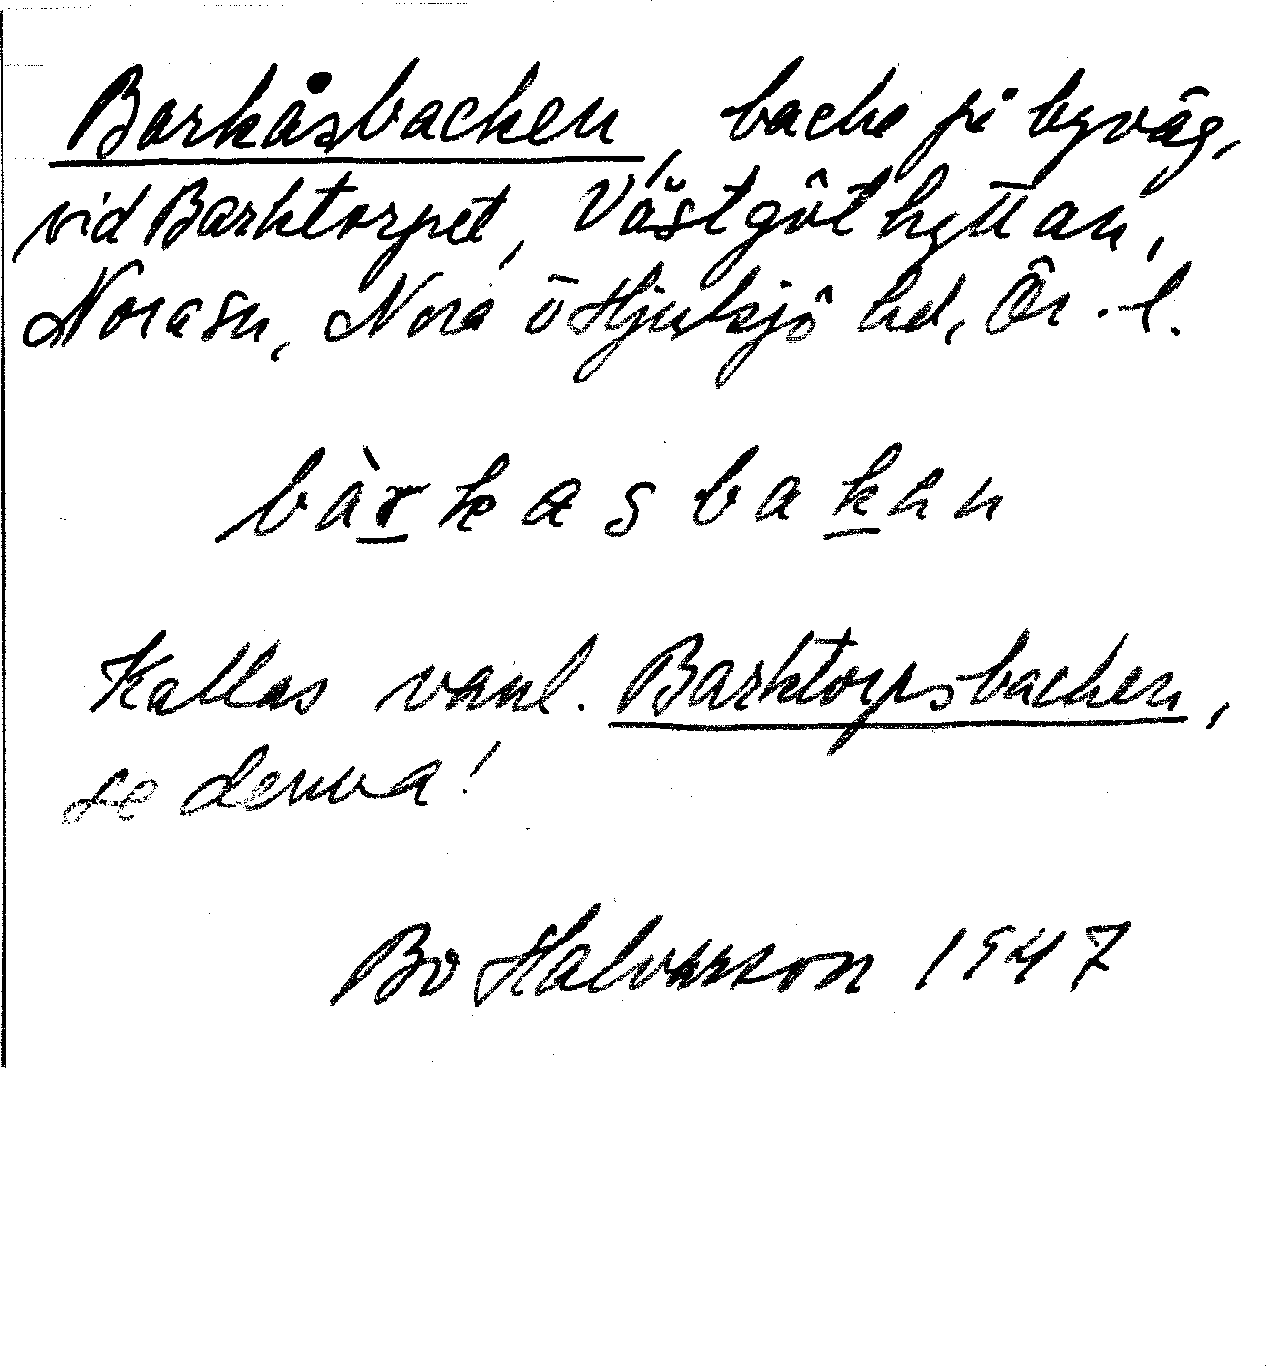 Barkåsbacken, backe på byväg,
vid Barktorpet, Västgöthyttan,
Nora sn, Nora o Hjulsjö hd, Ör. l.
bàrkasbakan
Kallas vanl. Barktorpsbacken,
se denna!
Bo Halvarsson 1947